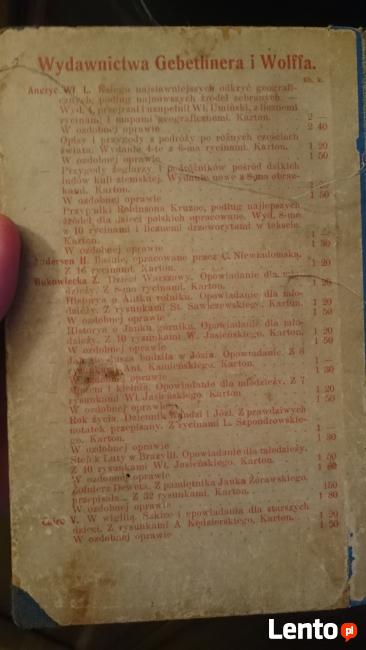 Wydawnictwa Gebethnera i Wolffa.
Rb. k.
Anczyc Wł. L. Księga najsławniejszych odkryć geografi-
cznych, podług najnowszych źródeł zebranych. —
Wyd. 4, przejrzał i uzupełnił Wł. Umiński, z licznemi
rycinami i mapami geograficznemi. Karton. 2 —
W ozdobnej oprawie 2 40
Opisy i przygody z podróży po różnych częściach
świata. Wydanie 4-te z 6-ma rycinami. Karton. 1 20
W ozdobnej oprawie 1 50
Przygody żeglarzy i podróżników pośród dzikich
ludów kuli ziemskiej. Wydanie nowe z 8-ma obraz-
kami. Karton.
W ozdobnej oprawie 1 50
Przypadki Robinsona Kruzoe, podług najlepszych
źródeł dla dzieci polskich opracowane. Wyd. 8-me
z 10 rycinami i licznemi drzeworytami w tekście.
Karton. 1 —
W ozdobnej oprawie 1 30
Andersen H. Baśnie, opracowane przez C. Niewiadomską.
Z 16 rycinami. Karton. 1 20
Bukowiecka Z. Dzieci Warszawy. Opowiadanie dla mło-
dzieży. Z 8-ma rycinami. Karton. 1 20
W ozdobnej oprawie 1 50
Historya o Antku rolniku. Opowiadanie dla mło-
dzieży. Z rysunkami St. Sawiczewskiego. Karton. 1 20
W ozdobnej oprawie 1 50
Historya o Janku górniku. Opowiadanie dla mło-
dzieży. Z 10 rysunkami W. Jasieńskiego. Karton. 1 20
W ozdobnej oprawie 1 50
Jak się dusza budziła w Józiu. Opowiadanie. Z 8
Ant. Kamieńskiego. Karton. 1 —
W ozdobnej oprawie 1 30
i kielnią. Opowiadanie dla młodzieży. Z 7
rysunkami Wł. Jasieńskiego. Karton. 1 20
W ozdobnej oprawie 1 50
Rok życia. Dziennik Wandzi i Józi. Z prawdziwych
notatek przepisany. Z rycinami L. Szpondrowskie-
go. Karton. 1 —
W ozdobnej oprawie 1 30
Stefek Luty w Brazylii. Opowiadanie dla młodzieży.
Z 10 rysunkami Wł. Jasieńskiego. Karton. 1 50
W ozdobnej oprawie 1 80
Żołnierz Deweta. Z pamiętnika Janka Żórawskiego
przepisała... Z 32 rysunkami. Karton. 1 50
W ozdobnej oprawie 1 80
V. W wigilię. Szkice i opowiadania dla starszych
dzieci. Z rysunkami A Kędzierskiego. Karton. 1 20
W ozdobnej oprawie 1 50
Lento.pl